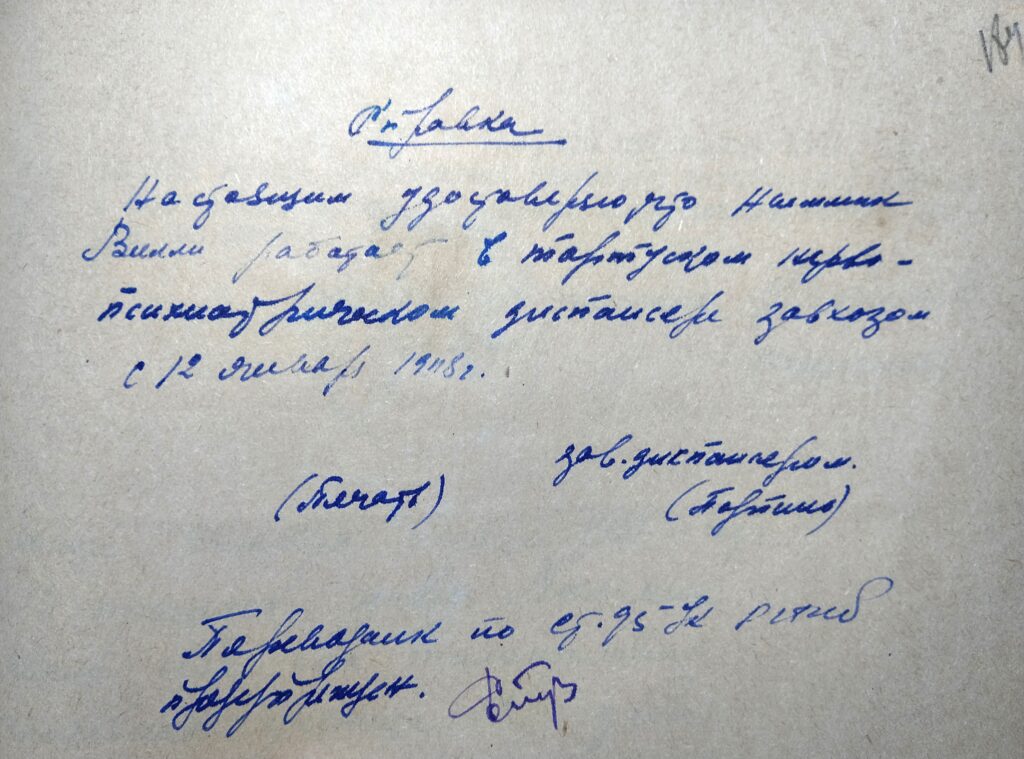 184
Справка
Настоящим удостоверяю, что Нимmик
Вилли работает в тартуском нерво-
психиатрическом диспансере завхозом
с 12 январ 1948г.
зав. диспансером.
(Печать) (Портно)
Переводчик по ст. 95 УК
предупрежден.